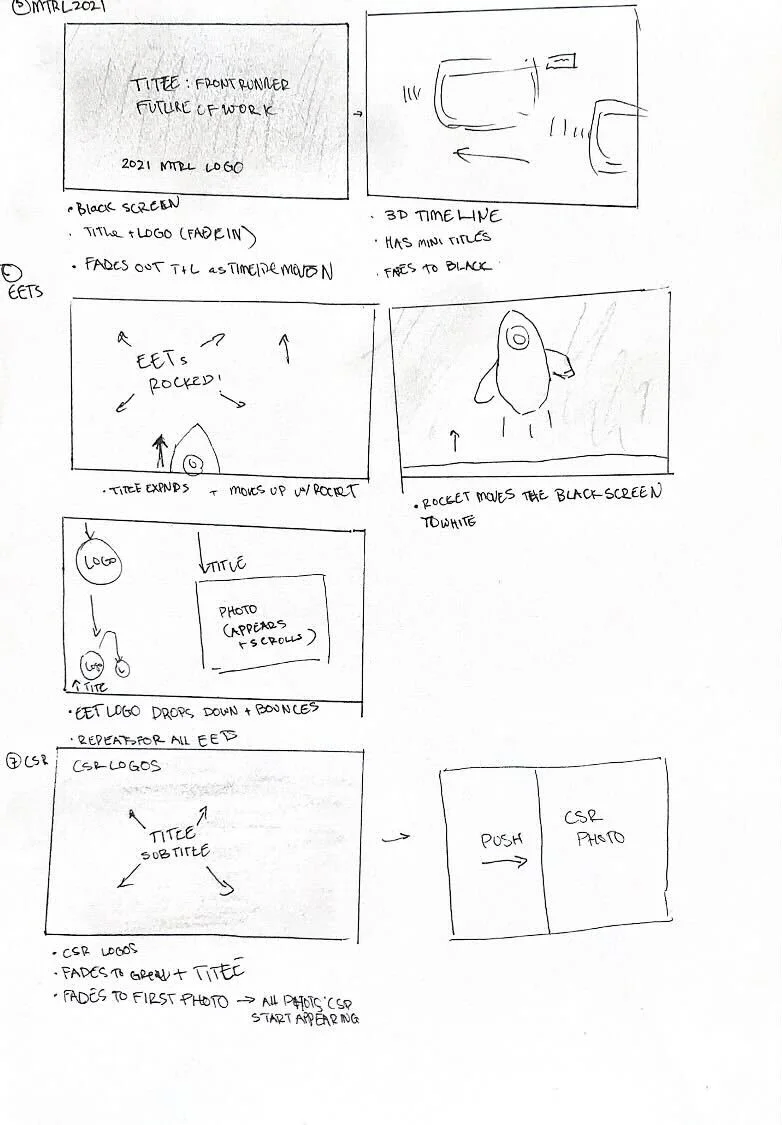 ⑤ MTRL 2021
TITLE : FRONTRUNNER
FUTURE OF WORK
2021 MTRL LOGO
• BLACK SCREEN
• TITLE + LOGO (FADE IN)
• FADES OUT T+L as TIMELINE MOVES IN
• 3D TIMELINE
• HAS MINI TITLES
• FADES TO BLACK
EETS
EETs
ROCKED!
• TITLE EXPNDS + MOVES UP w/ ROCKET
• ROCKET MOVES THE BLACK SCREEN
TO WHITE
LOGO
LOGO
L
TITLE
TITLE
PHOTO
(APPEARS
+ SCROLLS)
• EET LOGO DROPS DOWN + BOUNCES
• REPEATS FOR ALL EETS
⑦ CSR
CSR LOGOS
TITLE
SUBTITLE
PUSH
CSR
PHOTO
• CSR LOGOS
• FADES TO GREEN + TITLE
• FADES TO FIRST PHOTO → ALL PHOTOS CSR
START APPEARING